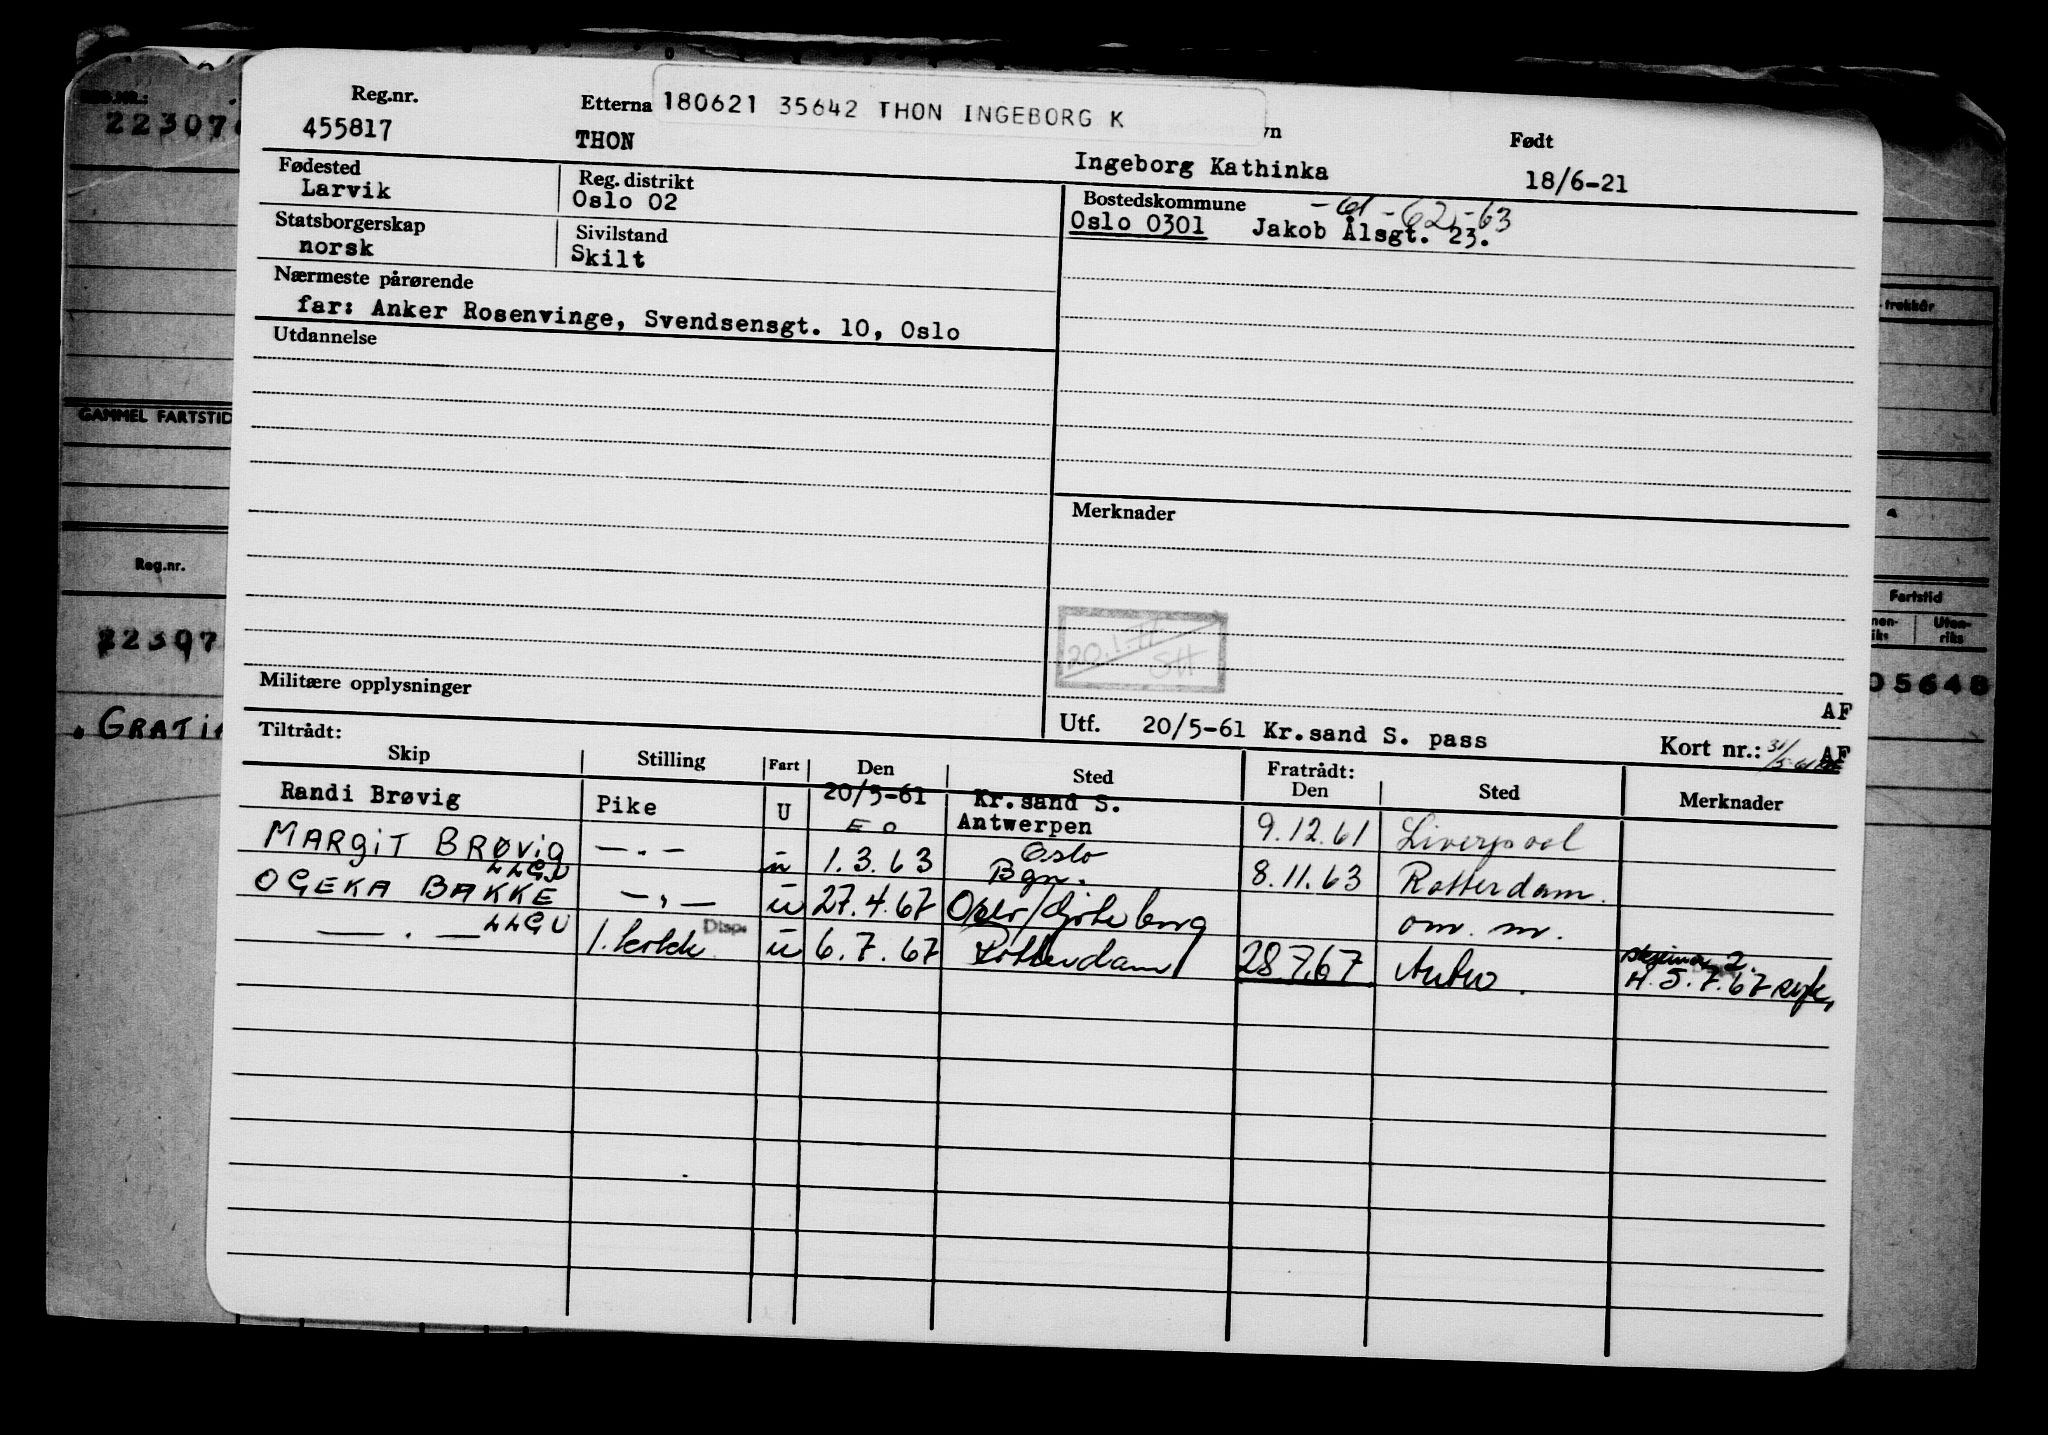 180621 35642 THON INGEBORG K
Reg.nr. Etterna vn Født
455817 THON Ingeborg Kathinka 18/6-21
Fødested Reg. distrikt Bostedskommune -61 -62 -63
Larvik Oslo 02 Oslo 0301 Jakob Ålsgt. 23.
Statsborgerskap Sivilstand
norsk Skilt
Nærmeste pårørende
far: Anker Rosenvinge, Svendsensgt. 10, Oslo
Utdannelse
Merknader
20.1.71
SH
Militære opplysninger
AF
Utf. 20/5-61 Kr.sand S. pass Kort nr.: AF
Tiltrådt: Fratrådt:
Skip Stilling Fart Den Sted Den Sted Merknader
Randi Brøvig Pike U 20/5-61 Kr.sand S. 9.12.61 Liverpool
E O Antwerpen
MARGIT BRØVIG LLGU —.— u 1.3.63 Oslo Bgn. 8.11.63 Rotterdam.
OGEKA BAKKE LLGU —.— u 27.4.67 Oslo/Gøteborg om. m.
—.— 1. kokk Disp. u 6.7.67 Rotterdam 28.7.67 Antw. skjema 2.
H. 5.7.67
REG.NR.:
22307
GAMMEL FARTSTID
Reg.nr.
22307
GRATI
trekkår
Fartstid
nen-
iks
Uten-
riks
05648